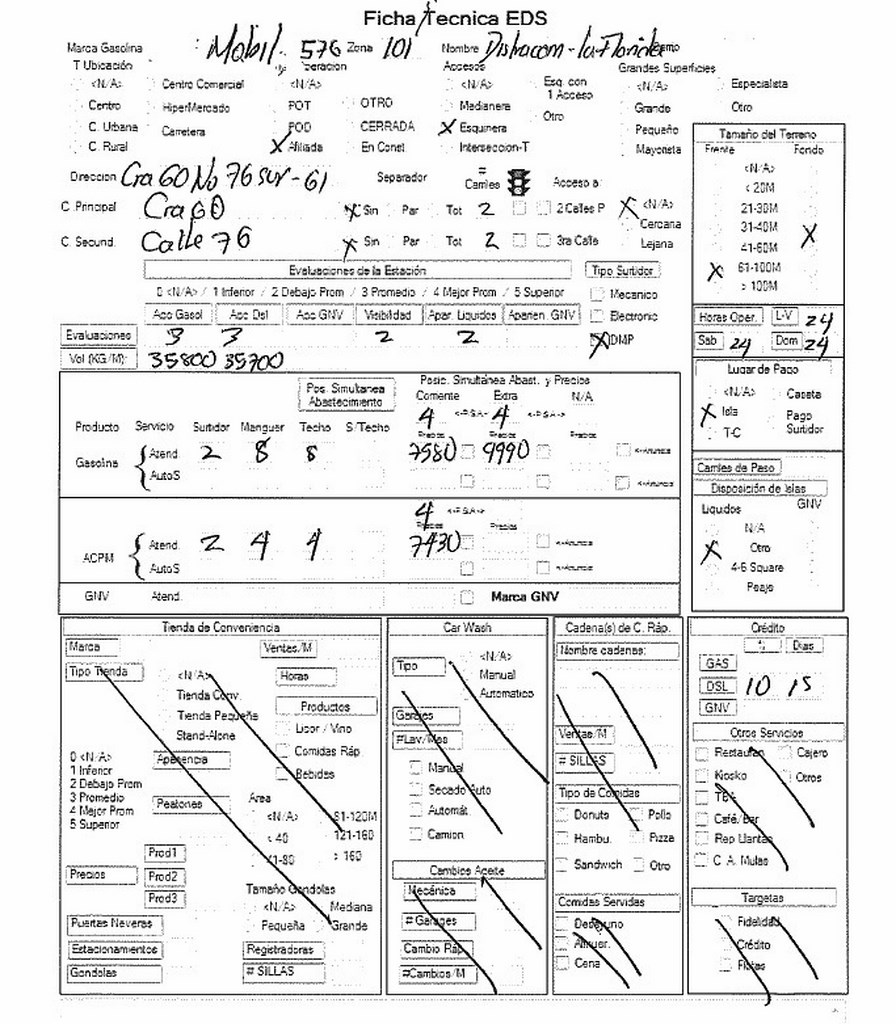 Ficha Tecnica EDS
Marca Gasolina : Mobil. 576 Zona 101 Nombre Distracom - la Florida
T Ubicación Accesos Grandes Superficies
<N/A> Centro Comercial <N/A> <N/A> Esq. con 1 Acceso <N/A> Especialista
Centro HiperMercado POT OTRO Medianera Otro Grande Otro
C. Urbana Carretera POD CERRADA X Esquinera Pequeño
C. Rural X Afiliada En Const. Interseccion-T Mayorista
Direccion Cra 60 No 76 sur - 61 Separador # Carriles Acceso a:
C. Principal Cra 60 X Sin Par Tot 2 2 Calles P X <N/A>
Cercana
C. Secund. Calle 76 X Sin Par Tot 2 3ra Calle Lejana
Tamaño del Terreno
Frente Fondo
<N/A>
< 20M
21-30M
31-40M X
41-60M
X 61-100M
> 100M
Evaluaciones de la Estación Tipo Surtidor
0 <N/A> / 1 Inferior / 2 Debajo Prom / 3 Promedio / 4 Mejor Prom / 5 Superior Mecanico
Apc Gasol Apc Dsl Apc GNV Visibilidad Apar. Liquidos Aparien. GNV Electronic
Evaluaciones 3 3 2 2 X DMP
Vol (KG/M): 35800 35700
Horas Oper. L-V 24
Sab 24 Dom 24
Lugar de Pago
<N/A> Caseta
X Isla Pago Surtidor
T-C
Pos. Simultanea Abastecimiento Posic. Simultánea Abast. y Precios
Corriente Extra N/A
4 4
Producto Servicio Surtidor Manguer Techo S/Techo Precios Precios Precios
Gasolina Atend. 2 8 8 7580 9990
AutoS
4
Precios Precios
ACPM Atend. 2 4 4 7430
AutoS
GNV Atend. Marca GNV
Carriles de Paso
Disposición de Islas
Liquidos GNV
N/A
X Otro
4-6 Square
Peaje
Tienda de Conveniencia
Marca Ventas/M
Tipo Tienda <N/A> Horas
Tienda Conv.
Tienda Pequeña Productos
Stand-Alone Licor / Vino
0 <N/A> Apariencia Comidas Ráp
1 Inferior Bebidas
2 Debajo Prom
3 Promedio Peatones Area
4 Mejor Prom <N/A> 81-120M
5 Superior < 40 121-160
41-80 > 160
Precios Prod1
Prod2
Prod3
Tamaño Gondolas
<N/A> Mediana
Puertas Neveras Pequeña Grande
Estacionamientos Registradoras
Gondolas # SILLAS
Car Wash
Tipo <N/A>
Manual
Automatico
Garajes
#Lav/Mes
Manual
Secado Auto
Automát.
Camion
Cambios Aceite
Mecánica
# Garages
Cambio Ráp
#Cambios/M
Cadena(s) de C. Ráp.
Nombre cadenas:
Ventas/M
# SILLAS
Tipo de Comidas
Donuts Pollo
Hambu. Pizza
Sandwich Otro
Comidas Servidas
Desayuno
Almuer.
Cena
Crédito
% Dias
GAS
DSL 10 15
GNV
Otros Servicios
Restauran Cajero
Kiosko Otros
TBA
Café/Bar
Rep Llantas
C A. Mulas
Targetas
Fidelidad
Crédito
Flotas